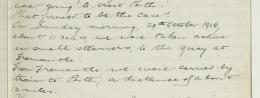 was going to visit Perth.
That proved to be the case.
On Sunday morning, 29th October 1916,
about 11.30 a.m. we were taken ashore
in small steamers, to the quay at
Fremantle.
From Fremantle we were carried by
train to Perth, a distance of about
miles.